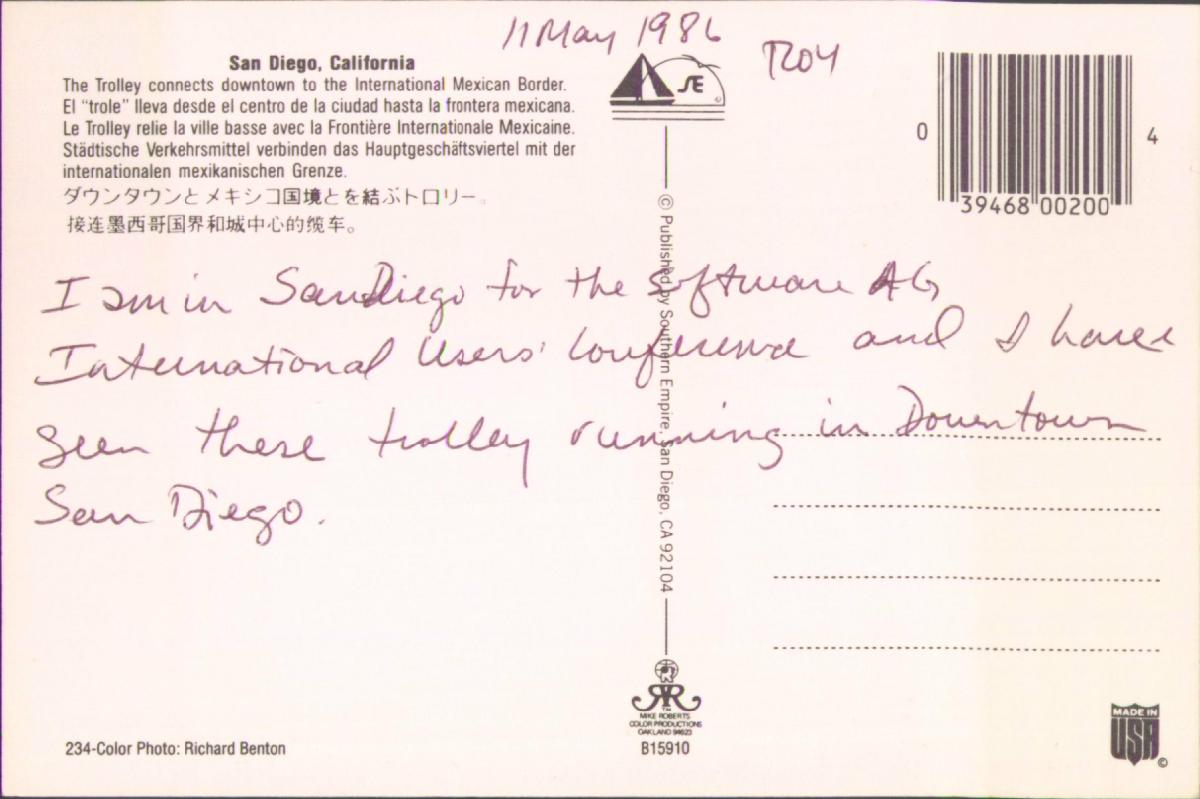 11 May 1986
TROY
San Diego, California
The Trolley connects downtown to the International Mexican Border.
El "trole" lleva desde el centro de la ciudad hasta la frontera mexicana.
Le Trolley relie la ville basse avec la Frontière Internationale Mexicaine.
Städtische Verkehrsmittel verbinden das Hauptgeschäftsviertel mit der
internationalen mexikanischen Grenze.
ダウンタウンとメキシコ国境とを結ぶトロリー。
接连墨西哥国界和城中心的缆车。
SE
©
0 39468 00200 4
I am in San Diego for the Software AG
International Users' Conference and I have
seen these trolley running in Downtown
San Diego.
© Published by Southern Empire, San Diego, CA 92104
MIKE ROBERTS
COLOR PRODUCTIONS
OAKLAND 94623
B15910
234-Color Photo: Richard Benton
MADE IN
USA
©